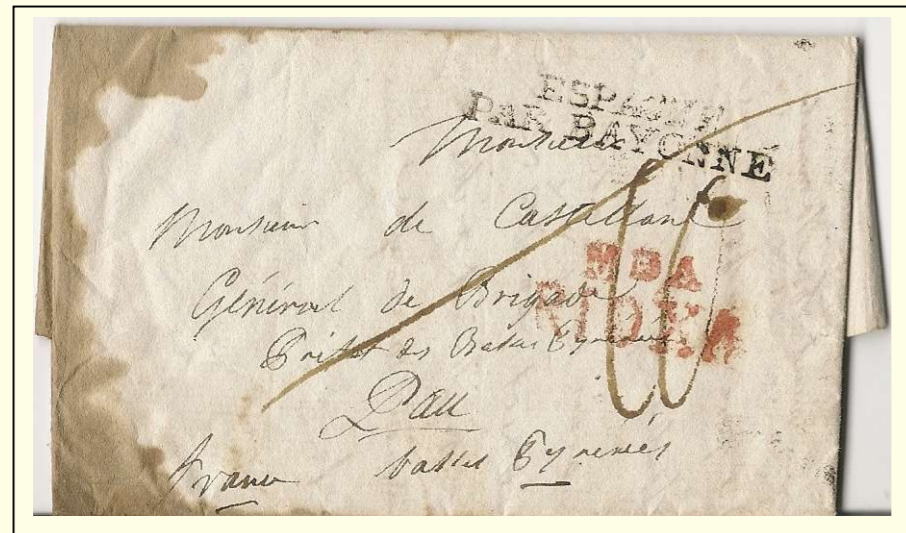 ESPAGNE
PAR BAYONNE
Monsieur
Monsieur de Castellane
Général de Brigade
Préfet des Basses Pyrénées
Pau
France basses Pyrenées